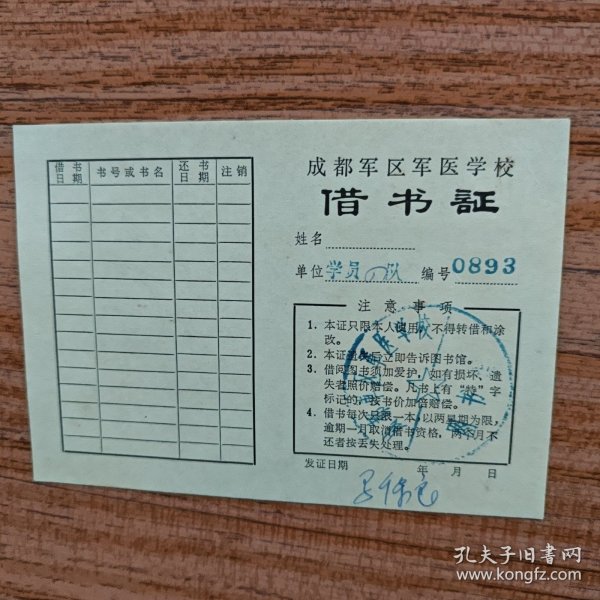 借书日期 书号或书名 还书日期 注销
成都军区军医学校
借书証
姓名
单位 学员 队 编号 0893
注意事项
1. 本证只限本人使用，不得转借和涂
改。
2. 本证遗失后立即告诉图书馆。
3. 借阅图书须加爱护，如有损坏、遗
失者照价赔偿。凡书上有“特”字
标记的，按书价加倍赔偿。
4. 借书每次只限一本，以两星期为限，
逾期一月取消借书资格，两个月不
还者按丢失处理。
发证日期 年 月 日
孔夫子旧书网
www.kongfz.com